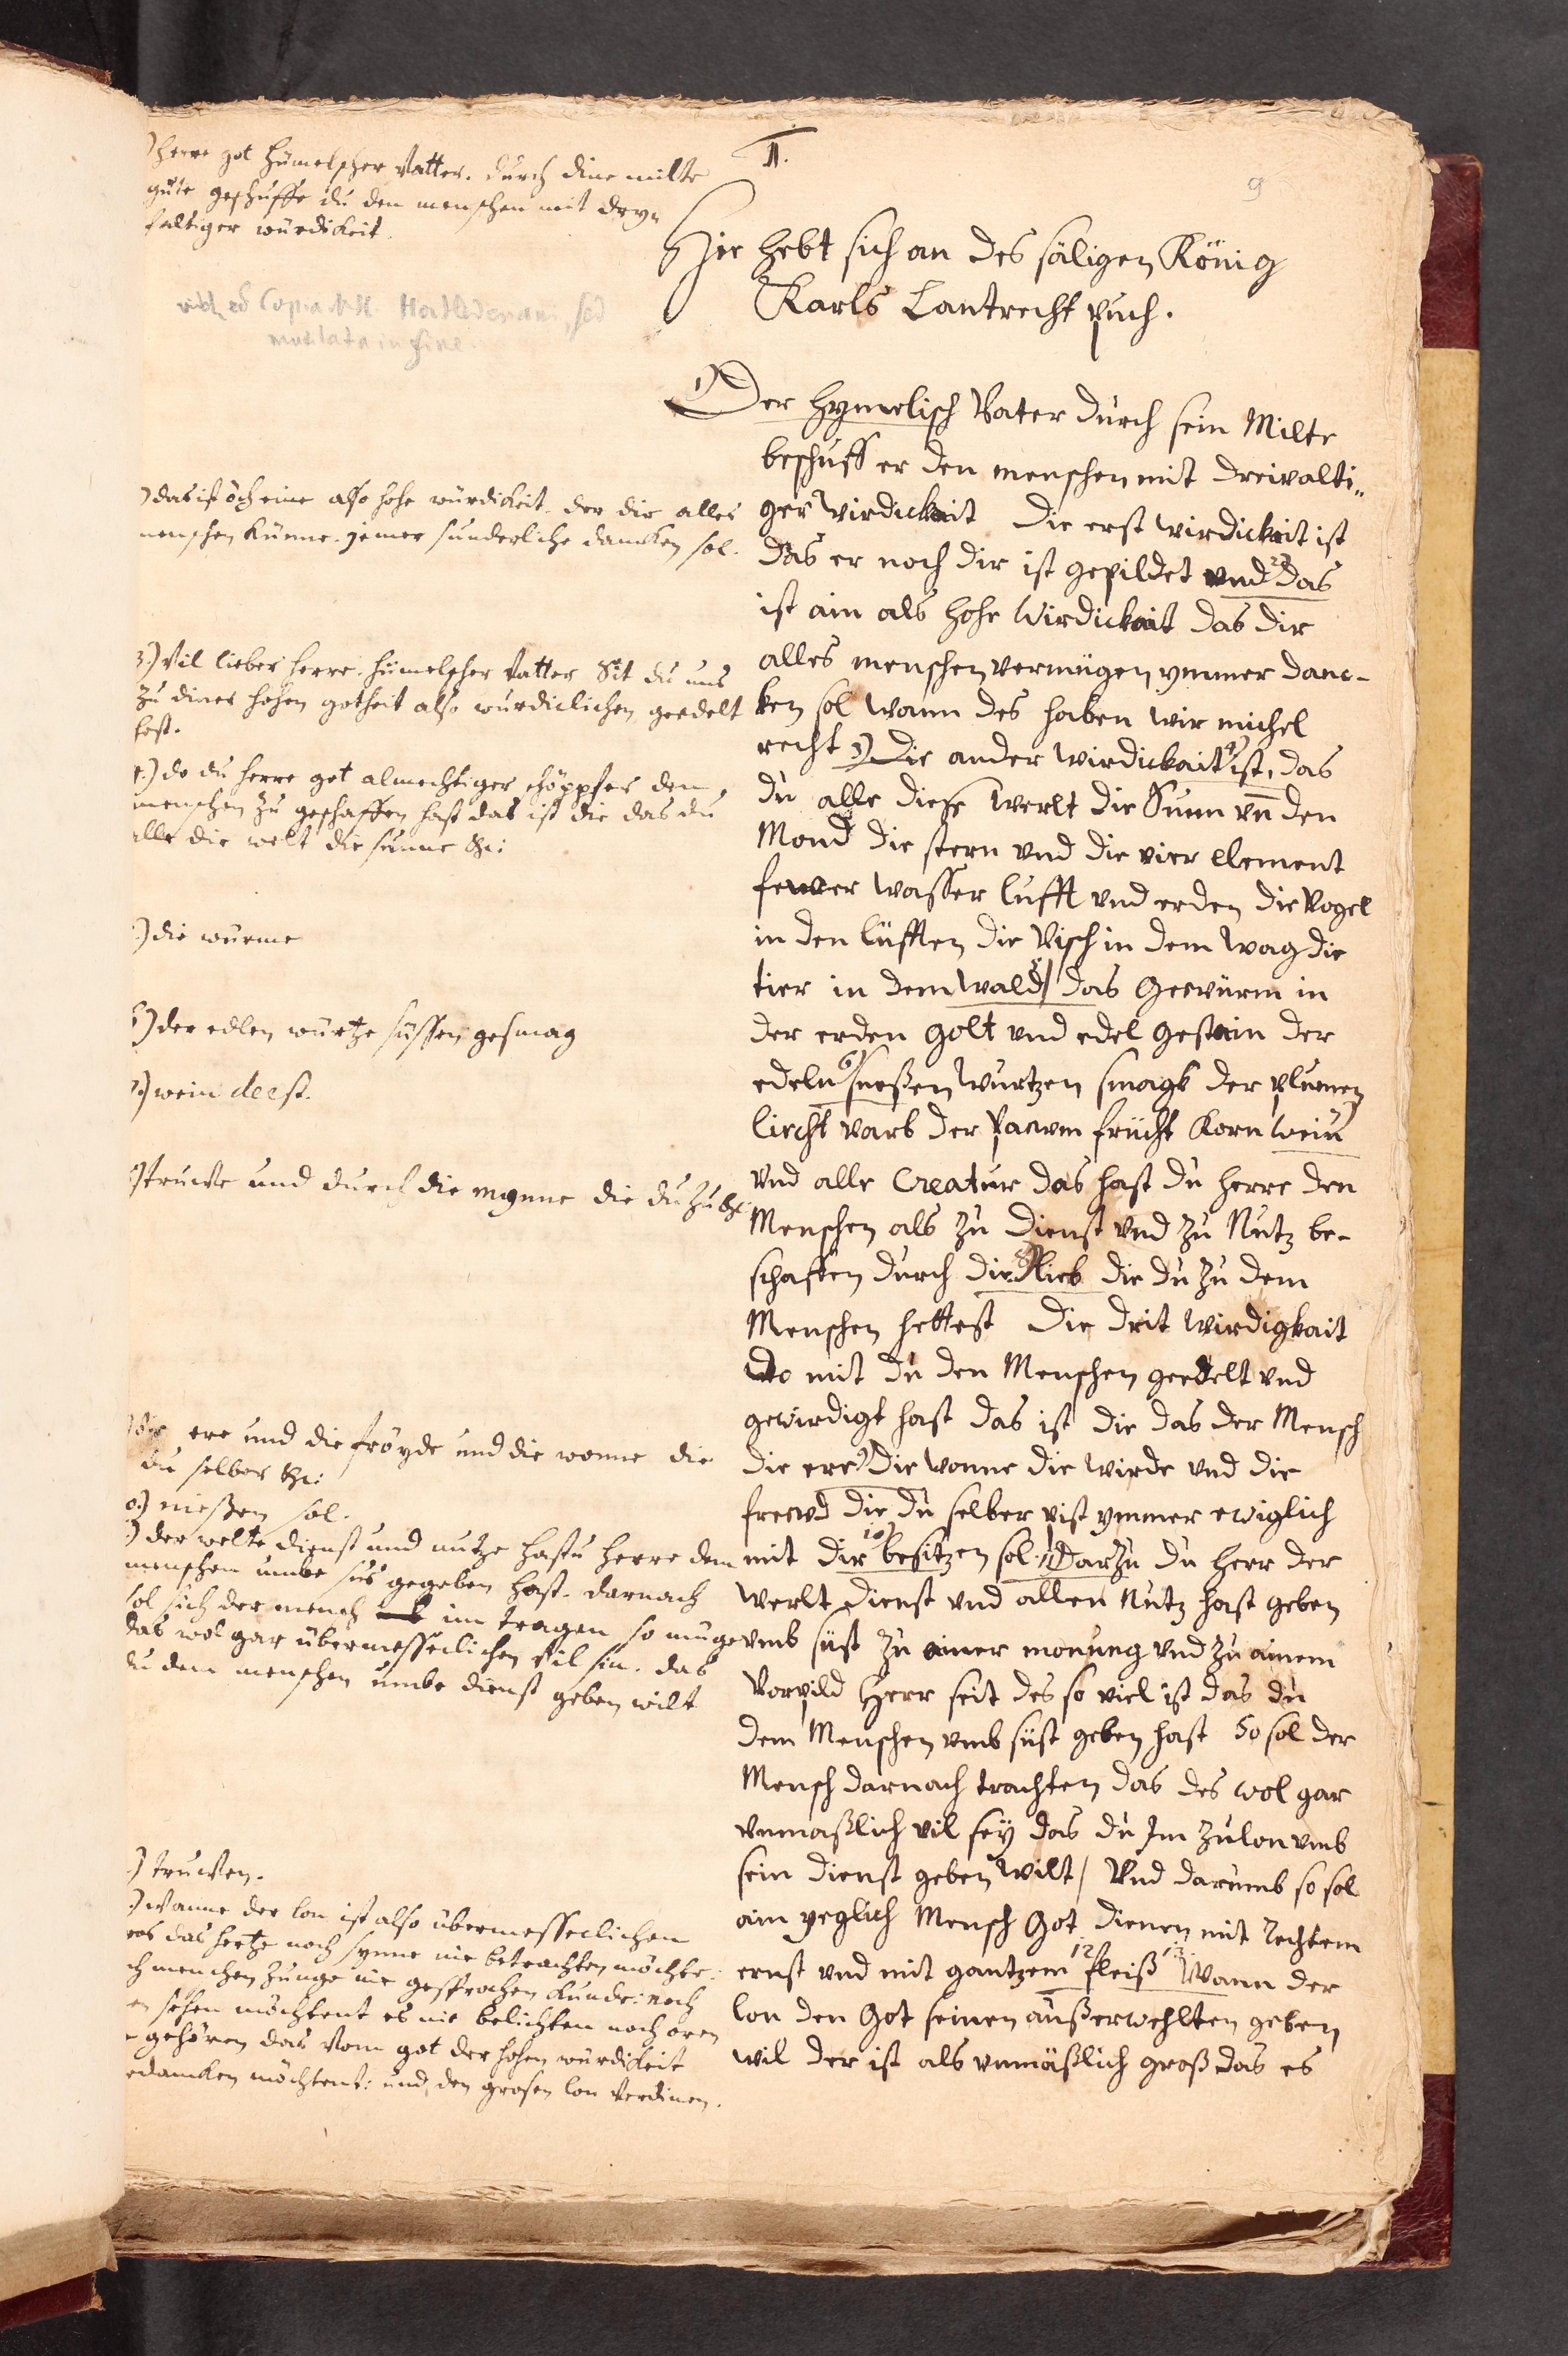 II.
9
Hie hebt sich an des säligen König
Karls Lantrecht puch.
1) Der hymelisch Vater durch sein Milte
beschuff er den menschen mit dreivalti„
ger Wirdickait Die erst wirdickait ist
das er noch dir ist gepildet vnd 2) das
ist ain als hohe Wirdickait das dir
alles menschen vermügen ymmer danc-
ken sol wann des haben wir michel
recht 3) Die ander wirdickait 4) ist, das
du alle diese werlt die Sunn vn̄ den
Mond die stern vnd die vier Element
fewer wasser lufft vnd erden die Vogel
in den lüfften die Visch in dem wag die
tier in dem wald 5) das gewürm in
der erden golt vnd edel gestain der
edeln 6) suessen wurtzen smagk der plumen
liecht varb der pawm frücht Korn wein 7)
vnd alle Creatur das hast du herre den
Menschen als zu dienst vnd zu Nutz be-
schaffen durch die 8) lieb die du zu dem
Menschen hettest Die drit wirdigkait
do mit du den Menschen geedelt vnd
gewirdigt hast das ist die das der Mensch
die ere 9) die wonne die wirde vnd die
frewd die du selber pist ymmer ewiglich
mit dir 10) besitzen sol. 11) Darzu du herr der
werlt dienst vnd allen Nutz hast geben
vmb süst zu ainer monung vnd zu ainem
Vorpild Herr seit des so viel ist das du
dem Menschen vmb süst geben hast So sol der
Mensch darnach trachten das des wol gar
vnmaßlich vil sey das du Im zu lon vmb
sein dienst geben wilt / Vnd darumb so sol
ain yeglich Mensch Got dienen mit rechtem
ernst vnd mit gantzem 12) fleiß 13) Wann der
lon den Got seinen außerwehlten geben
wil der ist als vnmäßlich groß das es
) herre got hümelscher Vatter. durch dine milte
güte geschuffe du den menschen mit dry„
faltiger würdikeit.
Copia MS. Hortlederani, sed
mutilata in fine.
) das ist öch eine also hohe würdikeit. der dir alles
menschen künne. jemer sunderliche dancken sol.
3.) Vil lieber herre. hümelscher Vatter Sit du uns
zu diner hohen gotheit also würdiclichen geedelt
hest.
4.) do du herre got almechtiger schöppfer den
menschen zu geschaffen hast das ist die das du
alle die welt die sunne &c:
) die würme
6) der edlen würtze süssen gesmag
7.) wein deest.
) truwe und durch die mynne die du zu &c:
) die ere und die fröyde und die wonne die
du selber &c:
0.) niessen sol.
) der welte dienst und nutze hastu herre dem
menschen umbe sus gegeben hast. darnach
sol sich der mench im tragen so müge
das wol gar übermesseclichen vil sin. das
du dem menschen umbe dienst geben wilt
) truwen.
) wanne der lon ist also übermesseclichen
das hertze noch synne nie betrachten möchte.
menschen zunge nie gesprochen kunde: noch
sehen möchtent es nie belichten noch oren
gehören das vom got der hohen würdikeit
gedancken möchtent: und den grosen lon verdinen.